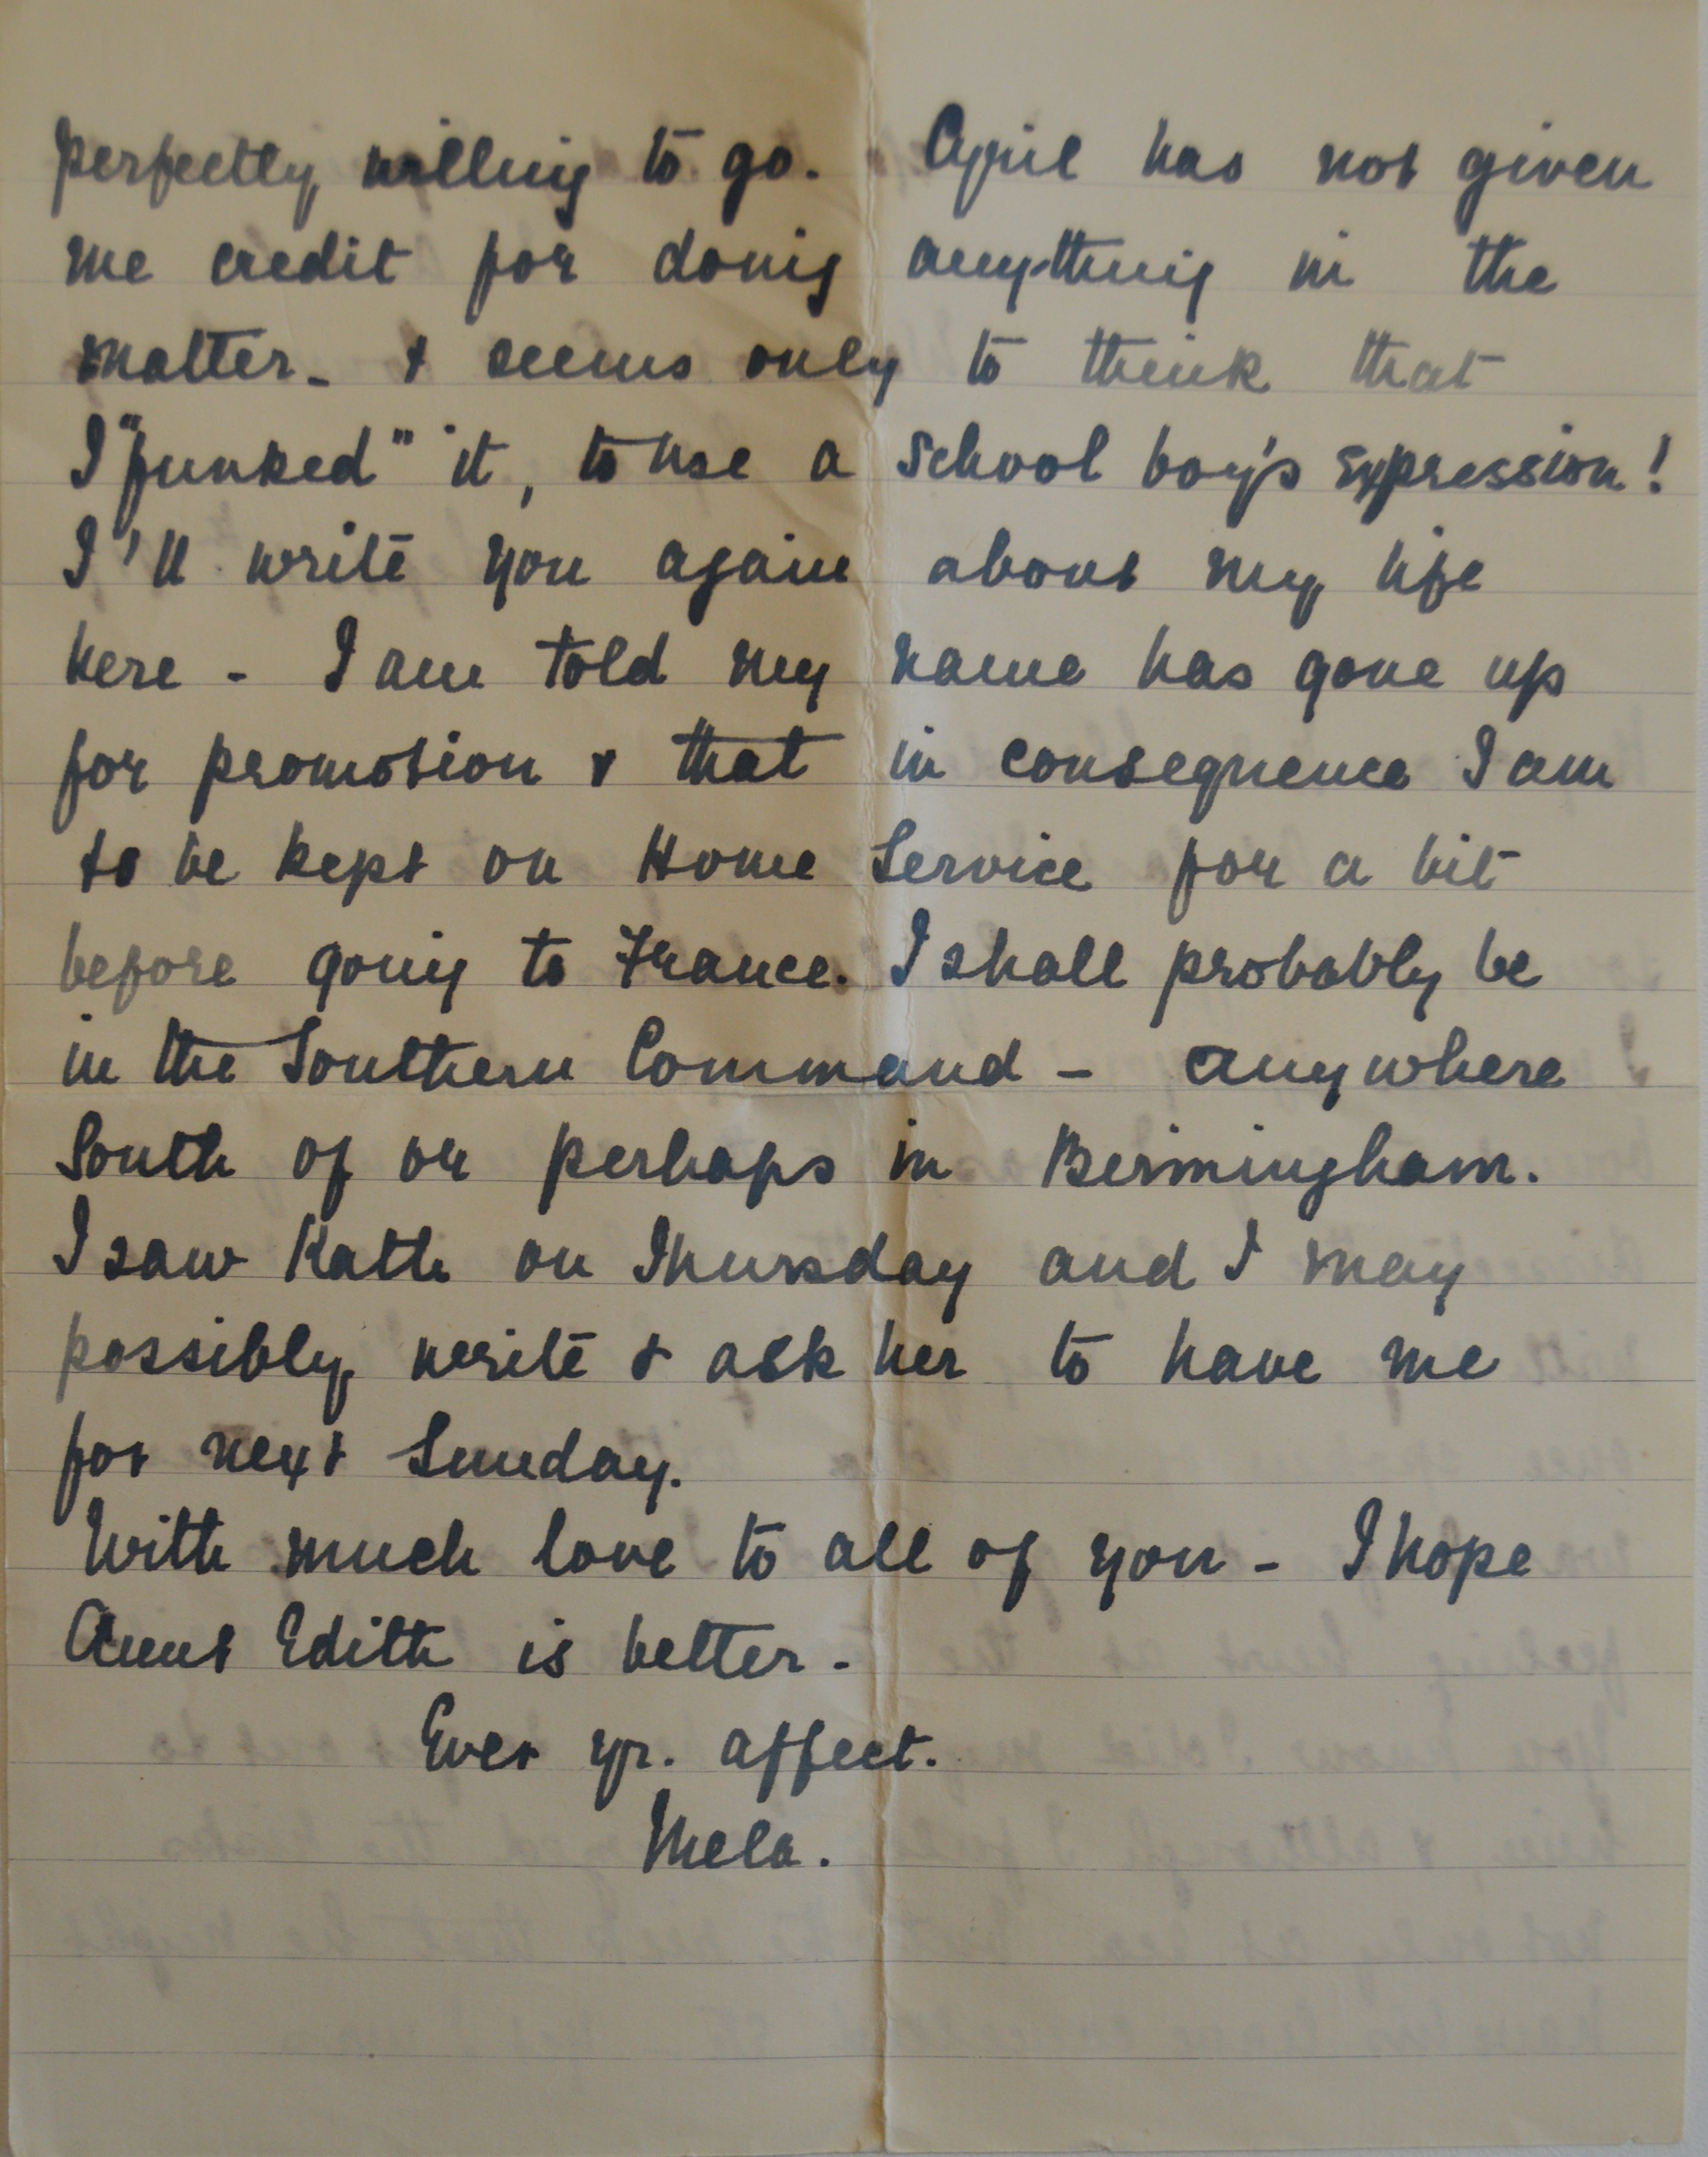 perfectly willing to go. April has not given
me credit for doing anything in the
matter - & seems only to think that
I "funked" it, to use a school boy's expression!
I'll write you again about my life
here - I am told my name has gone up
for promotion & that in consequence I am
to be kept on Home Service for a bit
before going to France. I shall probably be
in the Southern Command - anywhere
South of or perhaps in Birmingham.
I saw Kath on Thursday and I may
possibly write & ask her to have me
for next Sunday.
With much love to all of you - I hope
Aunt Edith is better -
Ever yr. affect.
Mela.